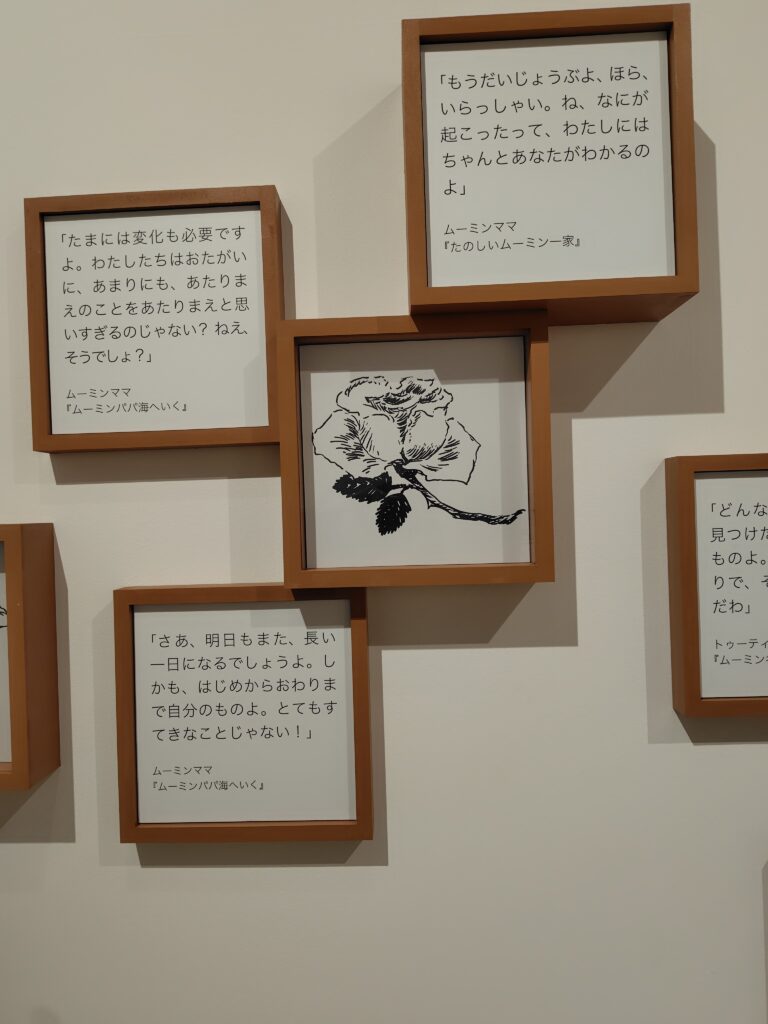 「もうだいじょうぶよ、ほら、
いらっしゃい。ね、なにが
起こったって、わたしには
ちゃんとあなたがわかるの
よ」
ムーミンママ
『たのしいムーミン一家』
「たまには変化も必要です
よ。わたしたちはおたがい
に、あまりにも、あたりま
えのことをあたりまえと思
いすぎるのじゃない? ねえ、
そうでしょ?」
ムーミンママ
『ムーミンパパ海へいく』
「さあ、明日もまた、長い
一日になるでしょうよ。し
かも、はじめからおわりま
で自分のものよ。とてもす
てきなことじゃない!」
ムーミンママ
『ムーミンパパ海へいく』
「どんな
見つけ
ものよ。
りで、
だわ」
トゥーティ
『ムーミン